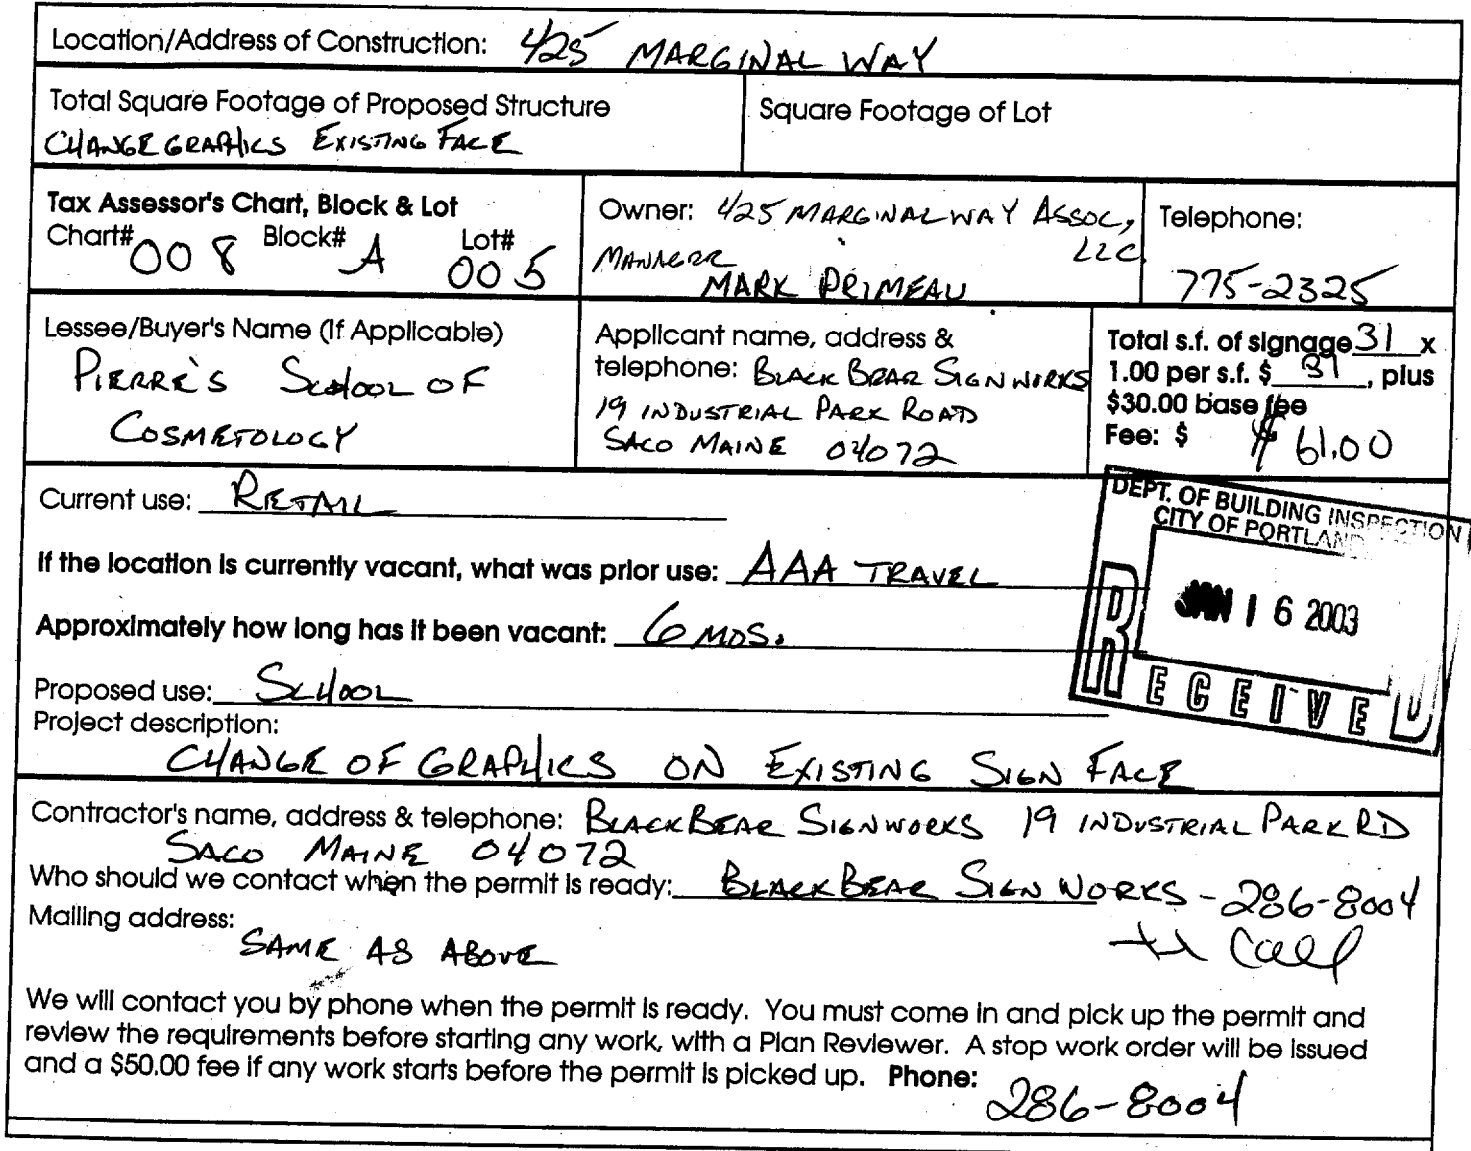 Location/Address of Construction: 425 MARGINAL WAY
Total Square Footage of Proposed Structure
CHANGE GRAPHICS EXISTING FACE
Square Footage of Lot
Tax Assessor's Chart, Block & Lot
Chart# 008 Block# A Lot# 005
Owner: 425 MARGINAL WAY ASSOC, LLC
MANAGER
MARK PRIMEAU
Telephone:
775-2325
Lessee/Buyer's Name (If Applicable)
PIERRE'S SCHOOL OF
COSMETOLOGY
Applicant name, address &
telephone: BLACK BEAR SIGNWORKS
19 INDUSTRIAL PARK ROAD
SACO MAINE 04072
Total s.f. of signage 31 x
1.00 per s.f. $ 31, plus
$30.00 base fee
Fee: $ $ 61.00
Current use: RETAIL
If the location is currently vacant, what was prior use: AAA TRAVEL
Approximately how long has it been vacant: 6 MOS.
Proposed use: SCHOOL
Project description:
CHANGE OF GRAPHICS ON EXISTING SIGN FACE
DEPT. OF BUILDING INSPECTION
CITY OF PORTLAND
JAN 16 2003
RECEIVED
Contractor's name, address & telephone: BLACK BEAR SIGNWORKS 19 INDUSTRIAL PARK RD
SACO MAINE 04072
Who should we contact when the permit is ready: BLACK BEAR SIGN WORKS - 286-8004
Mailing address:
SAME AS ABOVE
Call
We will contact you by phone when the permit is ready. You must come in and pick up the permit and
review the requirements before starting any work, with a Plan Reviewer. A stop work order will be issued
and a $50.00 fee if any work starts before the permit is picked up. Phone:
286-8004